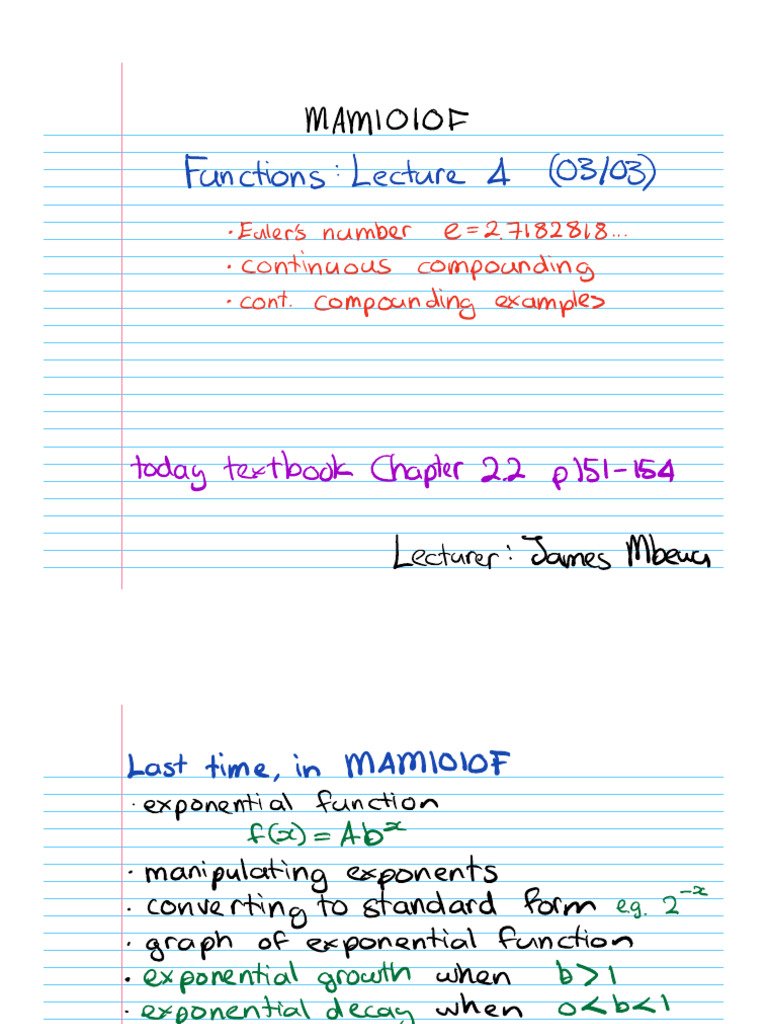 MAM1010F
Functions: Lecture 4 (03/03)
• Euler's number e = 2.7182818...
• continuous compounding
• cont. compounding examples
today textbook Chapter 2.2 p151-154
Lecturer: James Mbewu
Last time, in MAM1010F
• exponential function
f(x) = Ab^x
• manipulating exponents
• converting to standard form eg. 2^-x
• graph of exponential function
• exponential growth when b>1
• exponential decay when 0<b<1